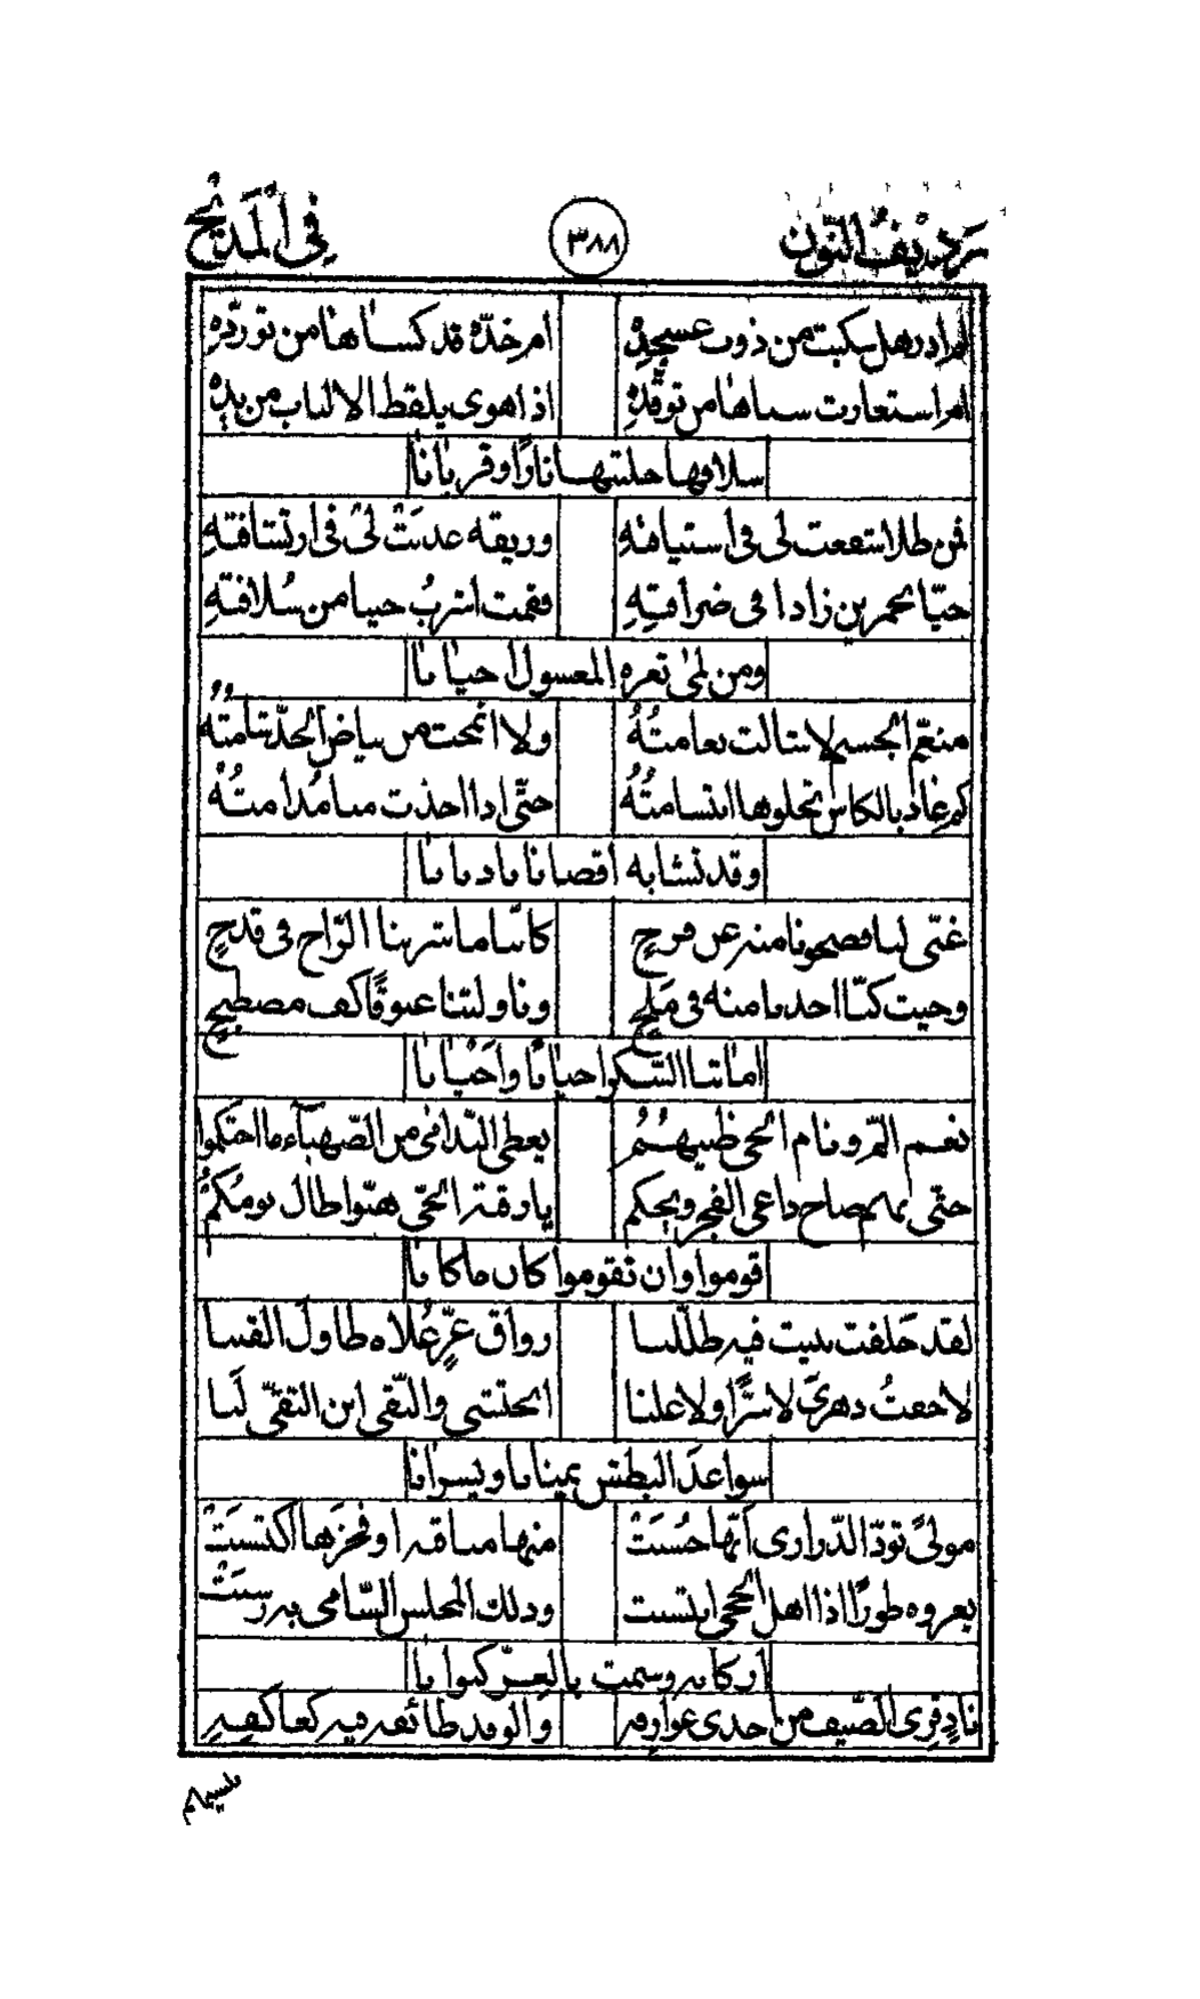 رديف النون ٣٨٨ في المديح
ام ادرهل سكبت من ذوب عسجده ام خدّه قد كساها من تورّده
ام استعارت سناها من توقّده اذا هوى يلقط الالباب من يده
سلافها خلتها نارًا وقربانا
فمن طلا استفعت لى فى استيافه وريقه عذبت لى فى ارتشافته
حيّا بخمرين زادا فى ضرافته فقمت اشرب حيبا من سُلافته
ومن لمى ثغره المعسول احيانا
منعّم الجسم لا شالت نعامتُهُ ولا انمحت من بياض الخدّ شامتُهُ
كم غاد بالكاس تجلوها ابتسامتُهُ حتّى اذا اخذت منا مُدامتُهُ
وقد تشابه اقصانا بادنانا
غنّى لنا فصحونا منه عن فرحٍ كانّنا ما شربنا الرّاح فى قدحٍ
وحيت كنّا اخدنا منه فى مَلحٍ وناولتنا غبوقًا كف مصطبحٍ
اماتنا السّكر احيانًا واَحْيانا
نعم النّم ونام الحى ظبيهُمُ يعطى النّدامى من الصّهبآء ما احتكموا
حتّى بهم صاح داعى الفجر ويحكم يا رفقة الحىّ هبّوا طال نومُكمُ
قوموا وان تقوموا كان ما كانا
لقد حَلفت ببيت فيه ظلّلنا رواق عزٍّ عُلاه طاول القننا
لا خفتُ دهرىَ لا سرًّا ولا علنا الخشى والتّقى ابن التقىّ لَنا
سواعدَ البطش يمنانا ويسرانا
مولىً تودّ الدّرارى انّها حُسبَتْ منها مناقبه او فخرَها اكتسبَتْ
يعروه طورًا اذا اهل الحجى انتسبت وذلك المجلس السّامى به رسبَتْ
اركانه وسمت بالعزّ كيوانا
نادٍ قِرى الضّيف من جدى عوارفه والوفد طائفه فيه كعاكفِهِ